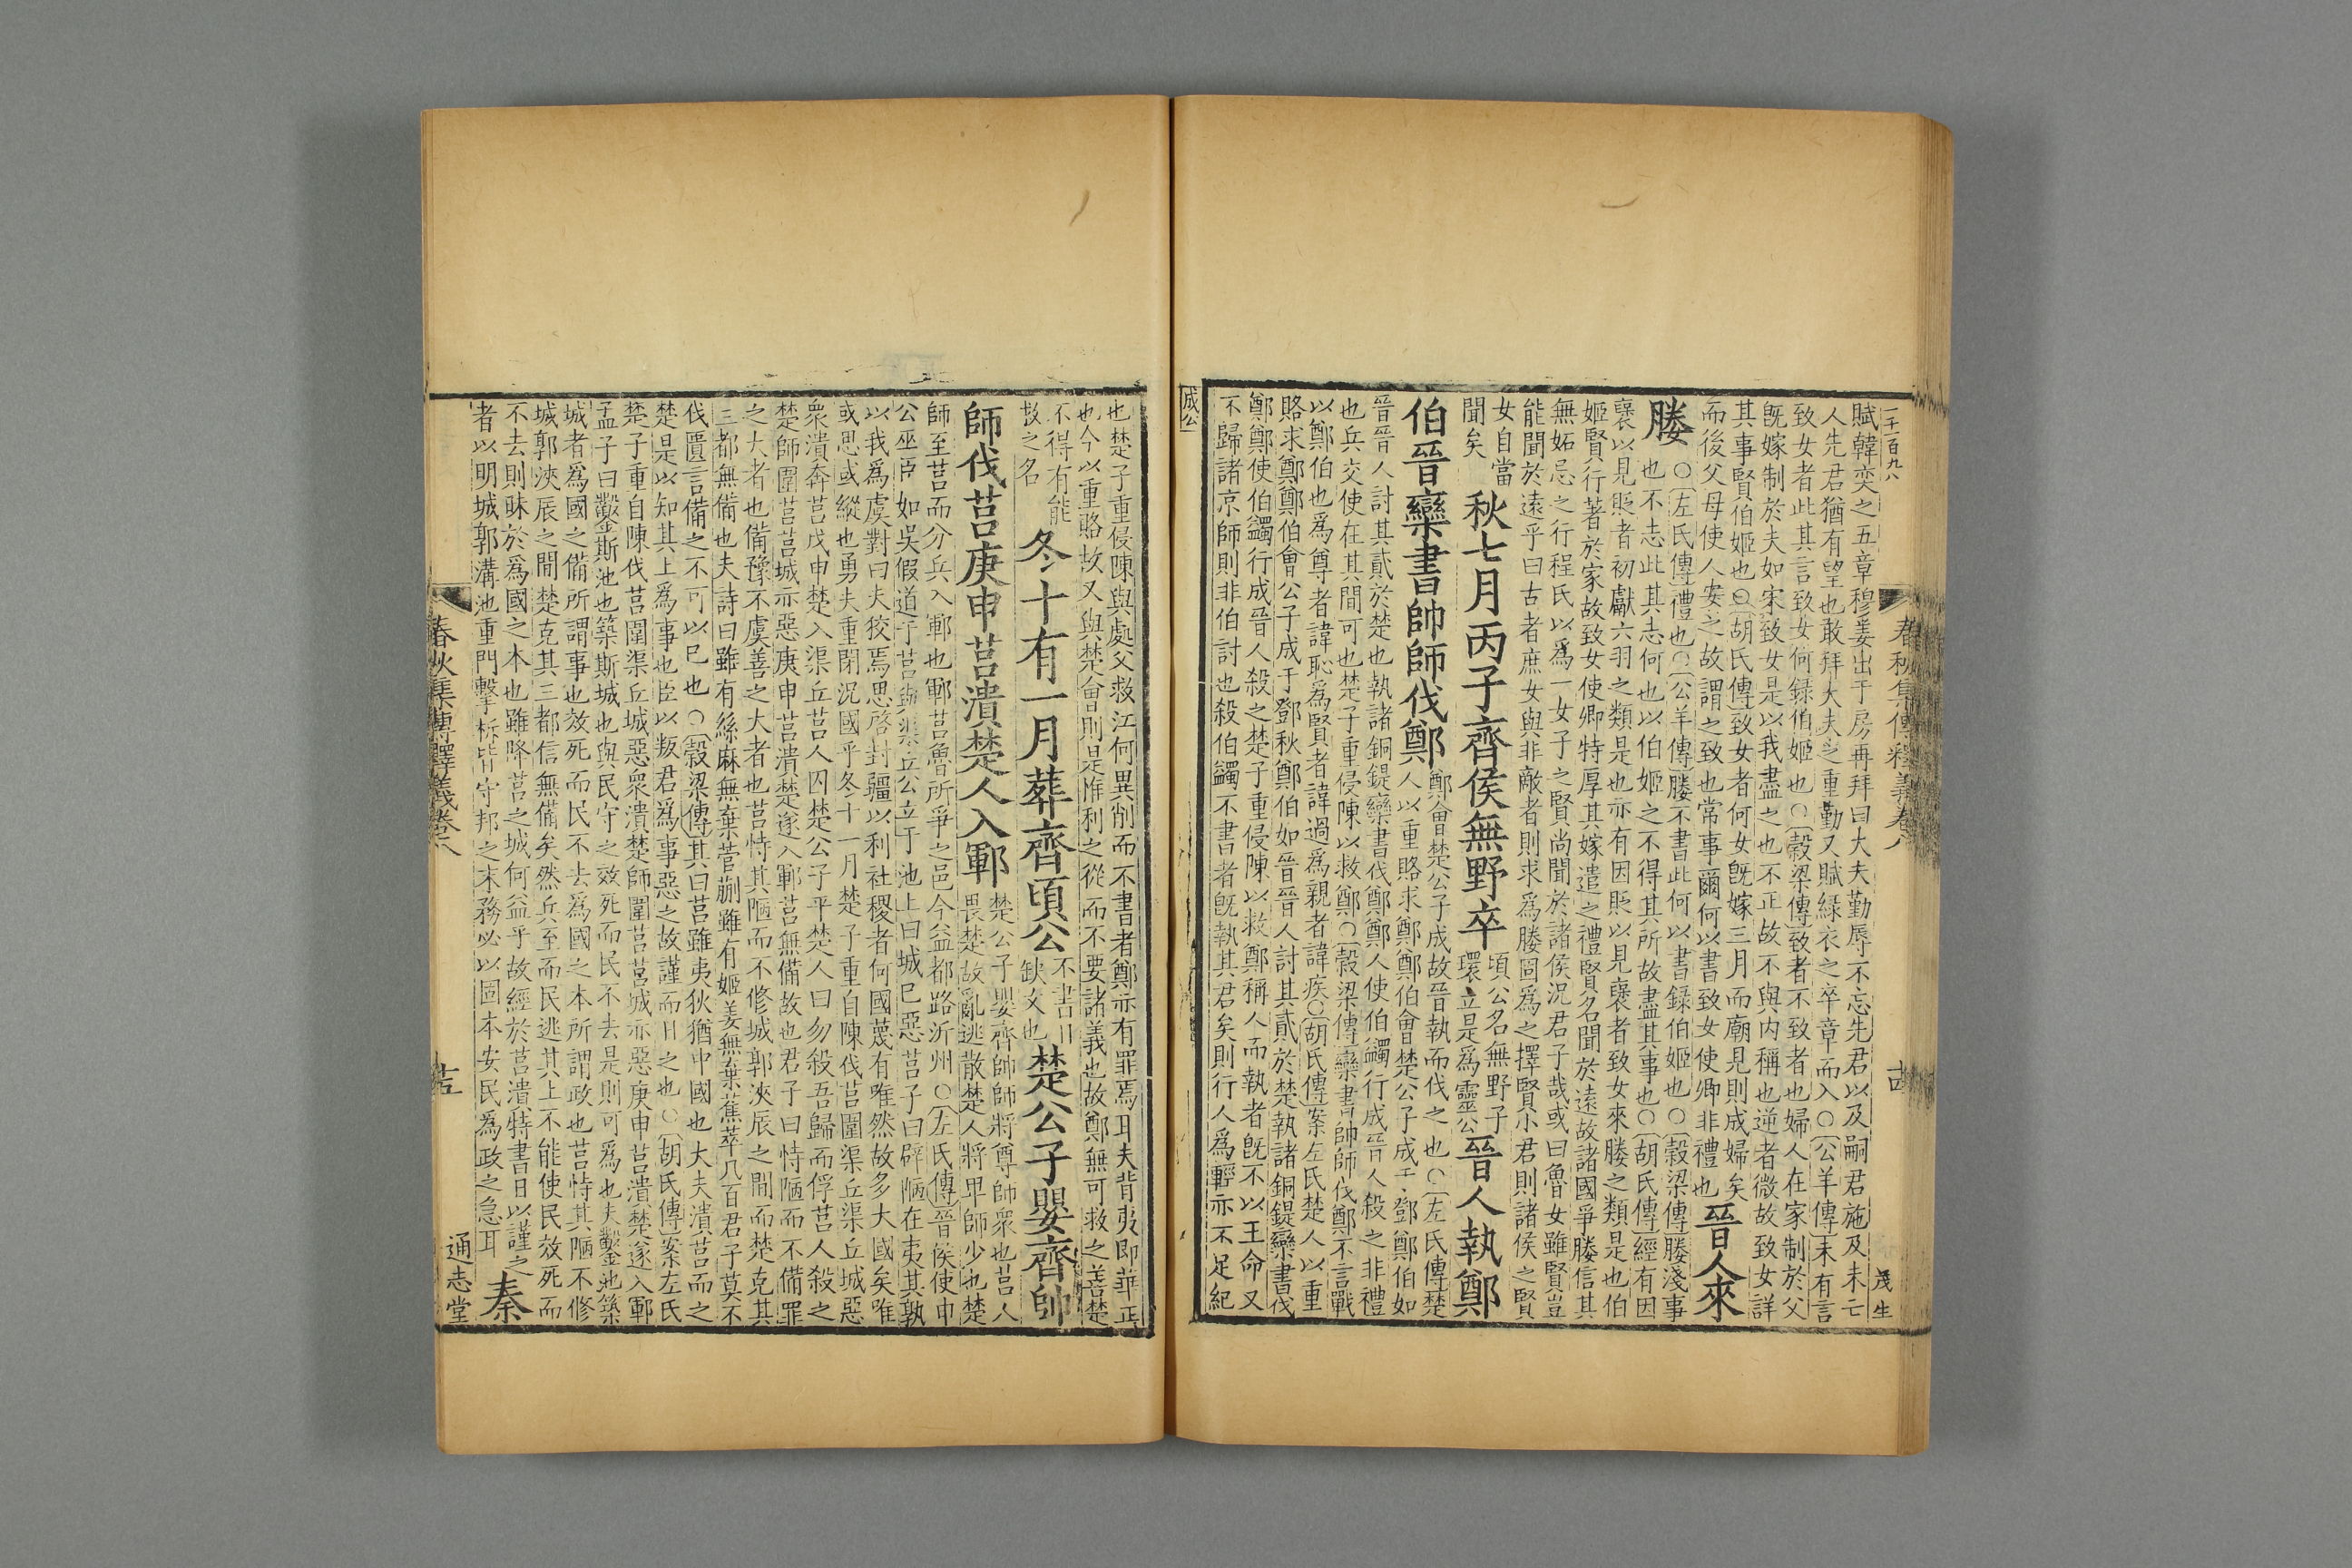 一千二百九八
春秋集傳釋義卷八
茂生
賦韓奕之五章穆姜出于房再拜曰大夫勤辱不忘先君以及嗣君施及未亡
人先君猶有望也敢拜大夫之重勤又賦綠衣之卒章而入○公羊傳未有言
致女者此其言致女何録伯姬也○穀梁傳致者不致者也婦人在家制於父
旣嫁制於夫如宋致女是以我盡之也不正故不與內稱也逆者微故致女詳
其事賢伯姬也○胡氏傳致女者何女旣嫁三月而廟見則成婦矣
而後父母使人安之故謂之致也常事爾何以書致女使卿非禮也
晉人來
媵
○左氏傳禮也○公羊傳媵不書此何以書録伯姬也○穀梁傳媵淺事
也不志此其志何也以伯姬之不得其所故盡其事也○胡氏傳經有因
襃以見貶者初獻六羽之類是也亦有因貶以見襃者致女來媵之類是也伯
姬賢行著於家故致女使卿特厚其嫁遣之禮賢名聞於遠故諸國爭媵信其
無妬忌之行程氏以爲一女子之賢尚聞於諸侯況君子哉或曰魯女雖賢豈
能聞於遠乎曰古者庶女與非敵者則求爲媵固爲之擇賢小君則諸侯之賢
女自當
聞矣
秋七月丙子齊侯無野卒
頃公名無野子
環立是爲靈公
晉人執鄭
伯晉欒書帥師伐鄭
鄭會楚公子成故晉執而伐之也○左氏傳楚
人以重賂求鄭鄭伯會楚公子成于鄧鄭伯如
晉晉人討其貳於楚也執諸銅鍉欒書伐鄭鄭人使伯蠲行成晉人殺之非禮
也兵交使在其間可也楚子重侵陳以救鄭○穀梁傳欒書帥師伐鄭不言戰
以鄭伯也爲尊者諱恥爲賢者諱過爲親者諱疾○胡氏傳案左氏楚人以重
賂求鄭鄭伯會公子成于鄧秋鄭伯如晉晉人討其貳於楚執諸銅鍉欒書伐
鄭鄭使伯蠲行成晉人殺之楚子重侵陳以救鄭稱人而執者旣不以王命又
不歸諸京師則非伯討也殺伯蠲不書者旣執其君矣則行人爲輕亦不足紀
成公
也楚子重侵陳與處父救江何異削而不書者鄭亦有罪焉耳夫背夷即華正
也今以重賂故又與楚會則是惟利之從而不要諸義也故鄭無可救之善楚
不得有能
救之名
冬十有一月葬齊頃公
不書日
缺文也
楚公子嬰齊帥
師伐莒庚申莒潰楚人入鄆
楚公子嬰齊帥師將尊師衆也莒人
畏楚故亂逃散楚人將卑師少也楚
師至莒而分兵入鄆也鄆莒魯所爭之邑今益都路沂州○左氏傳晉侯使申
公巫臣如吳假道于莒與渠丘公立于池上曰城已惡莒子曰辟陋在夷其孰
以我爲虞對曰夫狡焉思啓封疆以利社稷者何國蔑有唯然故多大國矣唯
或思或縱也勇夫重閉況國乎冬十一月楚子重自陳伐莒圍渠丘渠丘城惡
衆潰奔莒戊申楚入渠丘莒人囚楚公子平楚人曰勿殺吾歸而俘莒人殺之
楚師圍莒莒城亦惡庚申莒潰楚遂入鄆莒無備故也君子曰恃陋而不備罪
之大者也備豫不虞善之大者也莒恃其陋而不修城郭浹辰之間而楚克其
三都無備也夫詩曰雖有絲麻無棄菅蒯雖有姬姜無棄蕉萃凡百君子莫不
伐匱言備之不可以已也○穀梁傳其曰莒雖夷狄猶中國也大夫潰莒而之
楚是以知其上爲事也臣以叛君爲事惡之故謹而日之也○胡氏傳案左氏
楚子重自陳伐莒圍渠丘城惡衆潰楚師圍莒莒城亦惡庚申莒潰楚遂入鄆
孟子曰鑿斯池也築斯城也與民守之效死而民不去是則可爲也夫鑿池築
城者爲國之備所謂事也效死而民不去爲國之本所謂政也莒恃其陋不修
城郭浹辰之間楚克其三都信無備矣然兵至而民逃其上不能使民效死而
不去則昧於爲國之本也雖隆莒之城何益乎故經於莒潰特書日以謹之
者以明城郭溝池重門擊柝皆守邦之末務必以固本安民爲政之急耳
秦
春秋集傳釋義卷八
通志堂